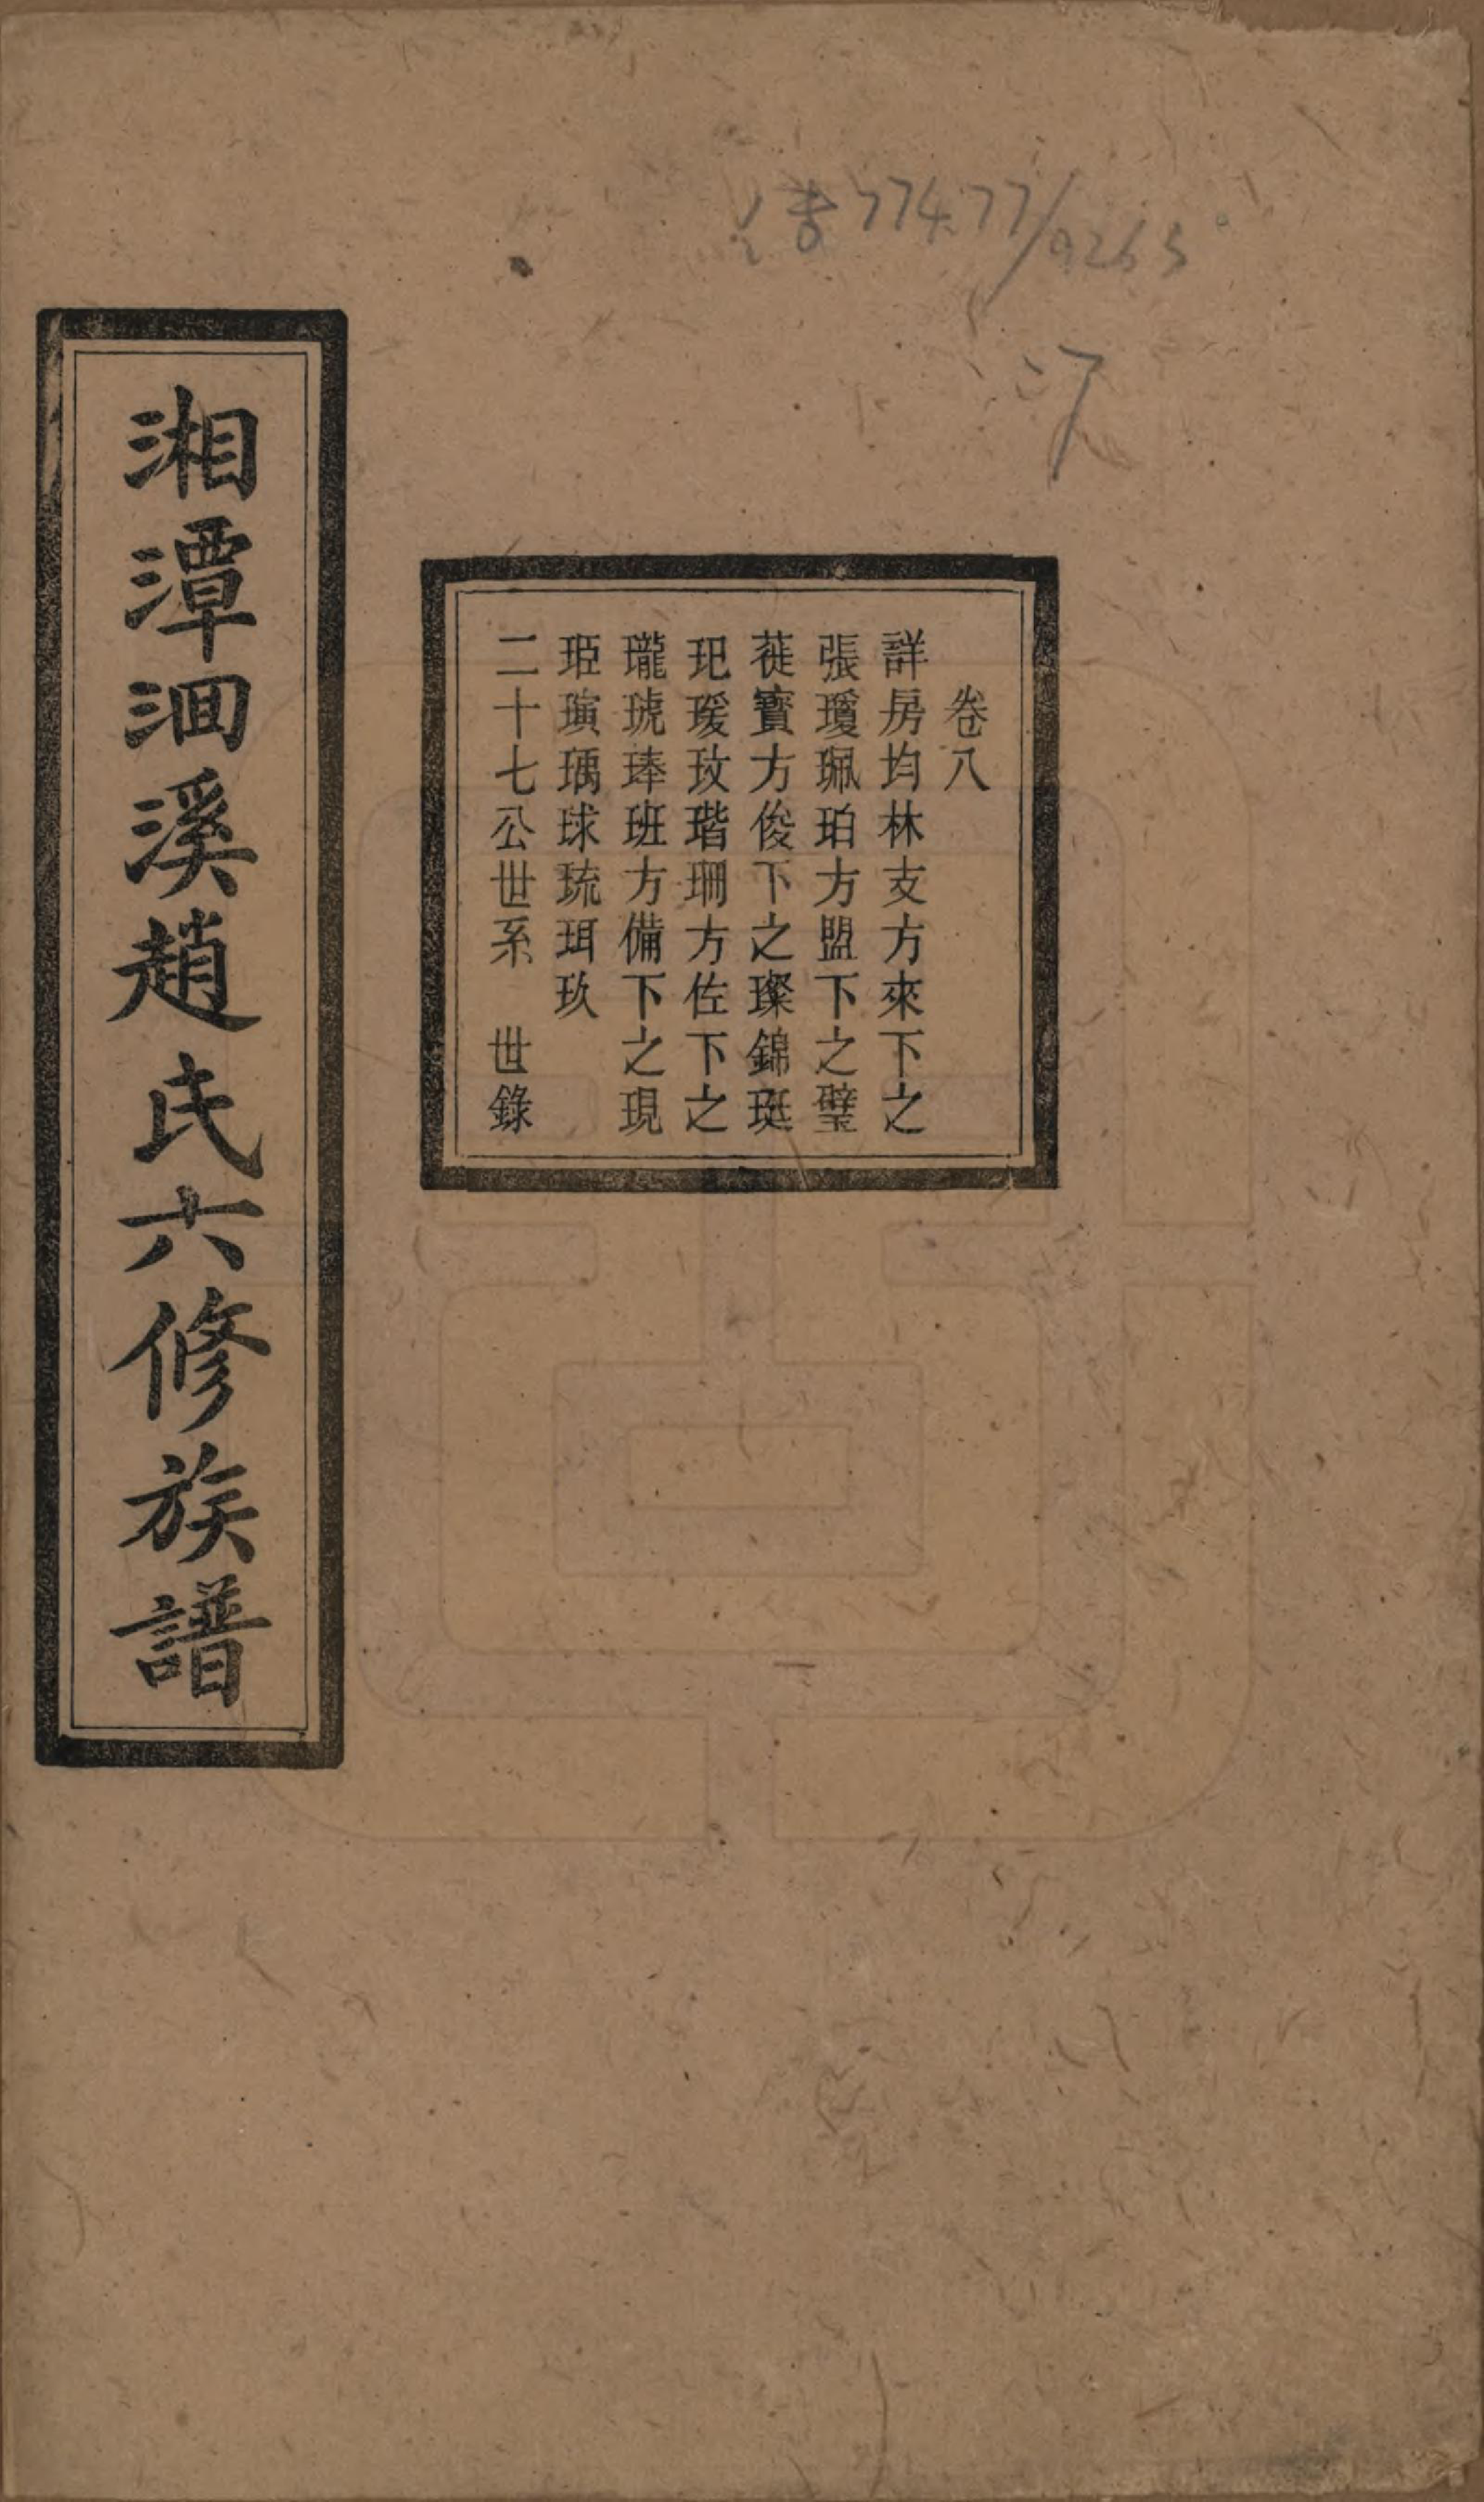 傳774.77/9265
:7
卷八
詳房均林支方來下之
張瓊珮珀方盟下之璧
蓗寳方俊下之璨錦珽
玘瑗玫瑎珊方佐下之
瓏琥琫班方備下之現
琞璌瑀球琉珥玖
二十七公世系　世錄
湘潭洄溪趙氏六修族譜